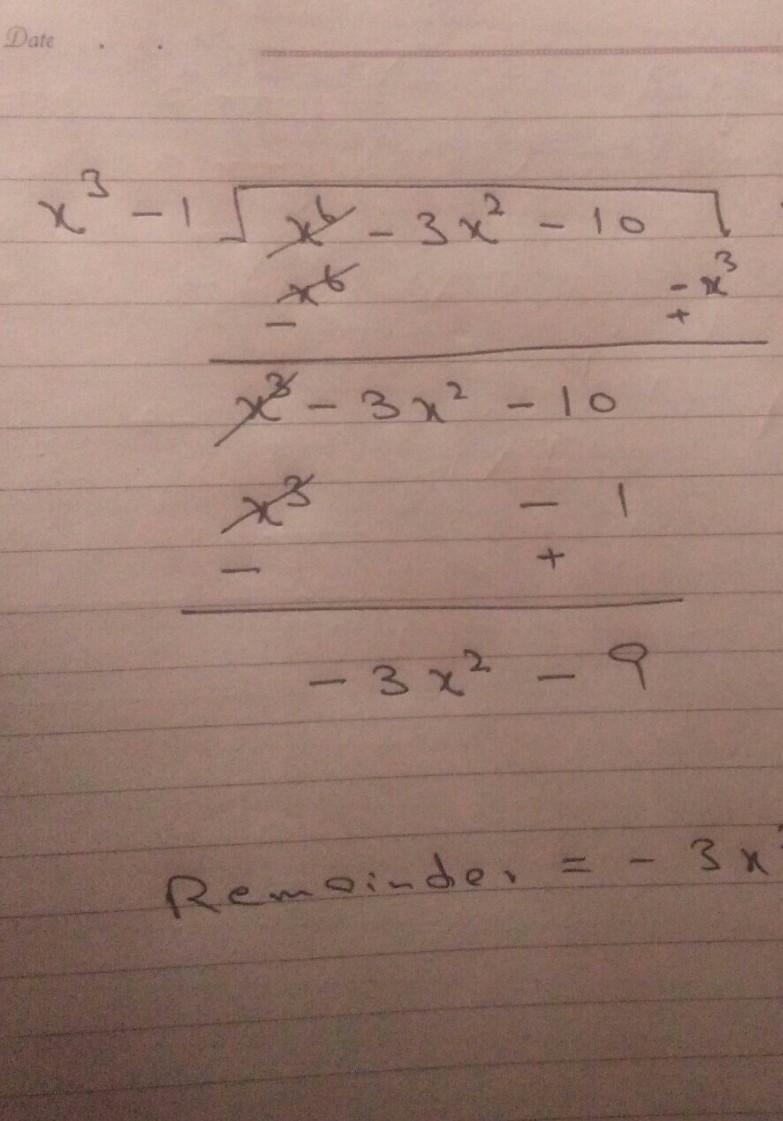 Date . .
x³ - 1 x⁶ - 3x² - 10
x⁶ - x³
- +
x³ - 3x² - 10
x³ - 1
- +
- 3x² - 9
Remainder = - 3x